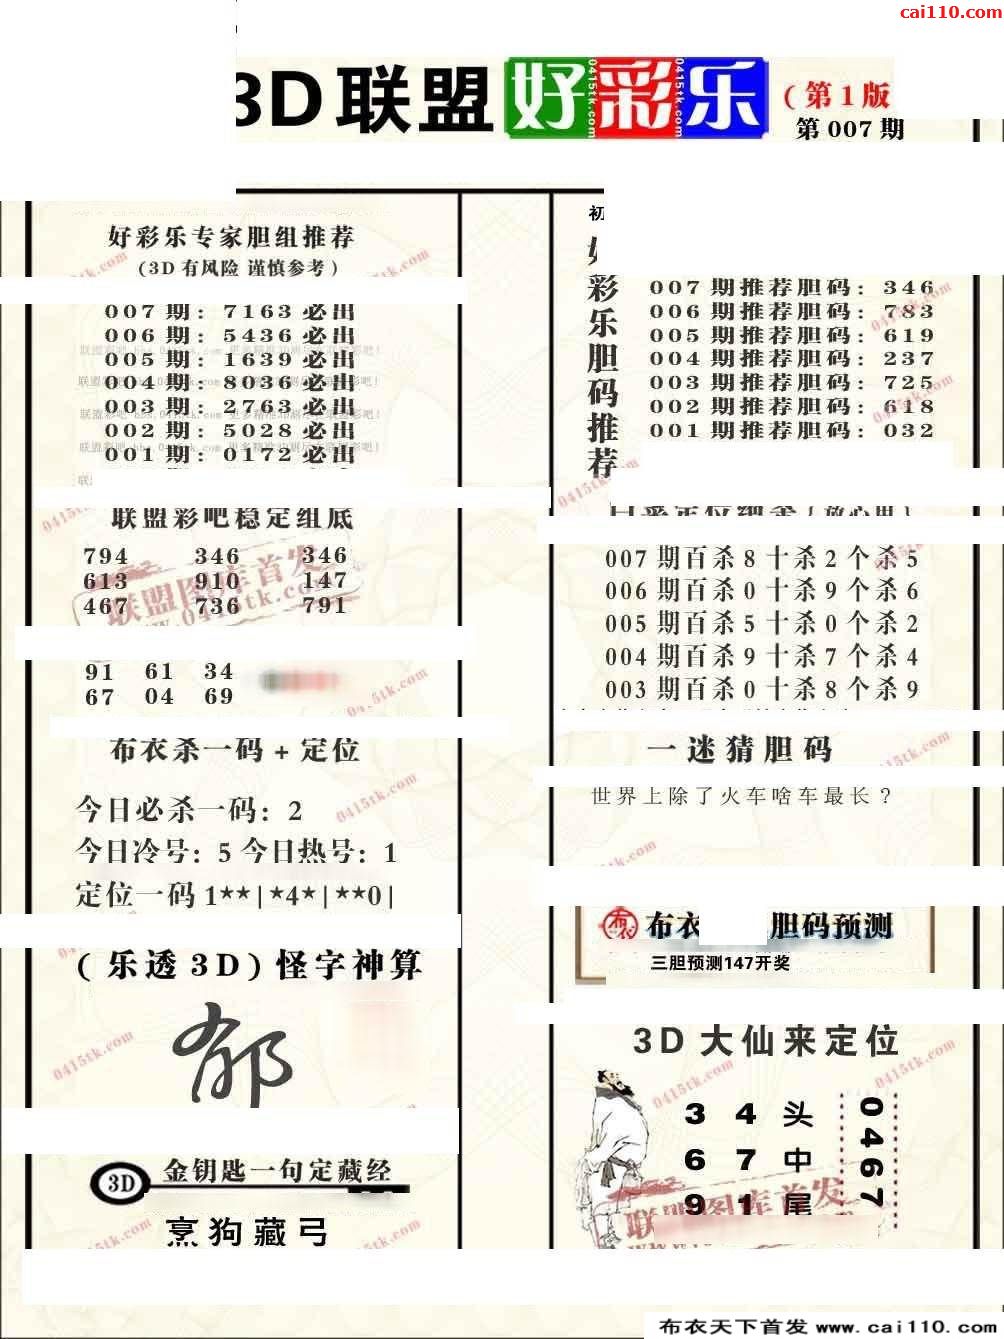 cai110.com
3D联盟好彩乐
(第1版
第007期
好彩乐专家胆组推荐
(3D有风险 谨慎参考)
007期: 7163必出
006期: 5436必出
005期: 1639必出
004期: 8036必出
003期: 2763必出
002期: 5028必出
001期: 0172必出
联盟彩吧稳定组底
794 346 346
613 910 147
467 736 791
91 61 34
67 04 69
布衣杀一码+定位
今日必杀一码: 2
今日冷号: 5 今日热号: 1
定位一码1**|*4*|**0|
(乐透3D)怪字神算
郁
3D 金钥匙一句定藏经
烹狗藏弓
初
好彩乐胆码推荐
007期推荐胆码: 346
006期推荐胆码: 783
005期推荐胆码: 619
004期推荐胆码: 237
003期推荐胆码: 725
002期推荐胆码: 618
001期推荐胆码: 032
007期百杀8十杀2个杀5
006期百杀0十杀9个杀6
005期百杀5十杀0个杀2
004期百杀9十杀7个杀4
003期百杀0十杀8个杀9
一迷猜胆码
世界上除了火车啥车最长?
布衣 布衣 胆码预测
三胆预测147开奖
3D大仙来定位
3 4 头
6 7 中
9 1 尾
0467
联盟图库首发
www.0415tk.com
0415tk.com
布衣天下首发 www.cai110.com